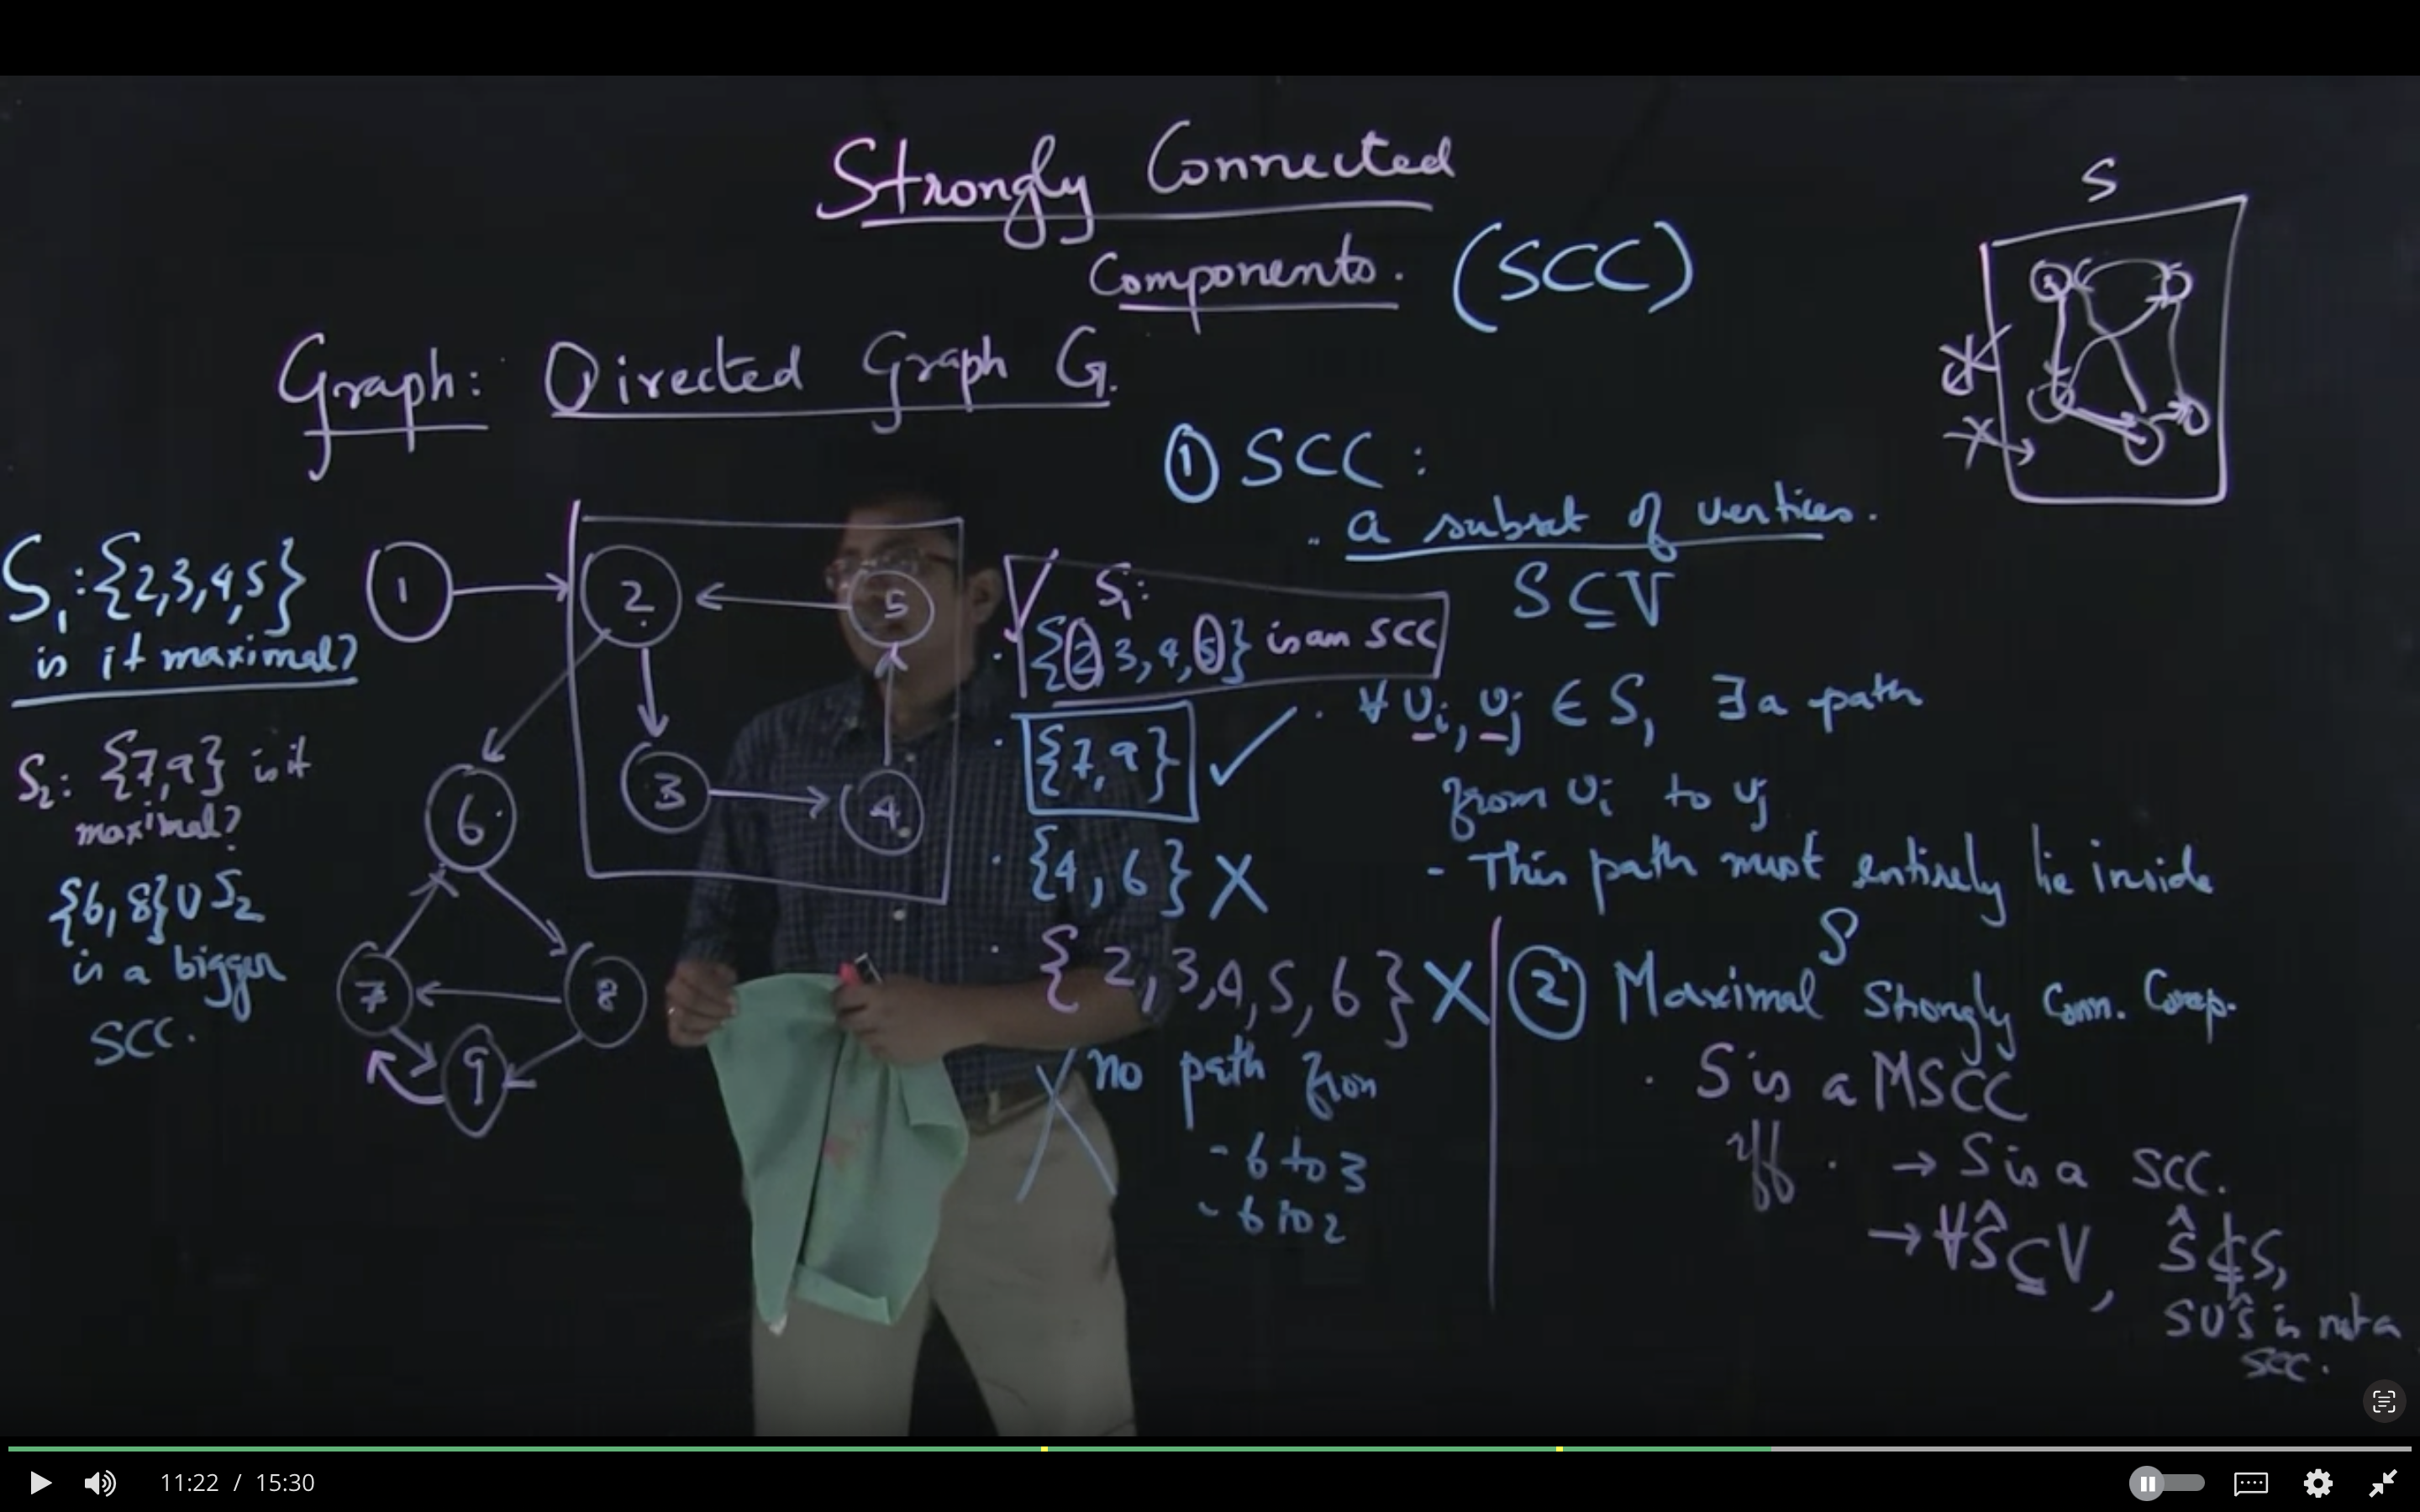 Strongly Connected
Components. (SCC)
S
Graph: Directed Graph G.
① SCC :
a subset of vertices.
S ⊆ V
S₁:{2,3,4,5}
is it maximal?
S₂: {7,9} is it
maximal?
{6,8} ∪ S₂
is a bigger
SCC.
1
2
5
3
4
6
7
8
9
S₁:
{2,3,4,5} is an SCC
{7,9} ✓
{4,6} X
{2,3,4,5,6} X
X no path from
- 6 to 3
- 6 to 2
· ∀ vᵢ, vⱼ ∈ S, ∃ a path
from vᵢ to vⱼ
- This path must entirely lie inside
S
② Maximal Strongly Conn. Comp.
· S is a MSCC
iff · → S is a SCC.
→ ∀Ŝ ⊆ V, Ŝ ⊈ S,
S ∪ Ŝ is not a
SCC.
11:22 / 15:30